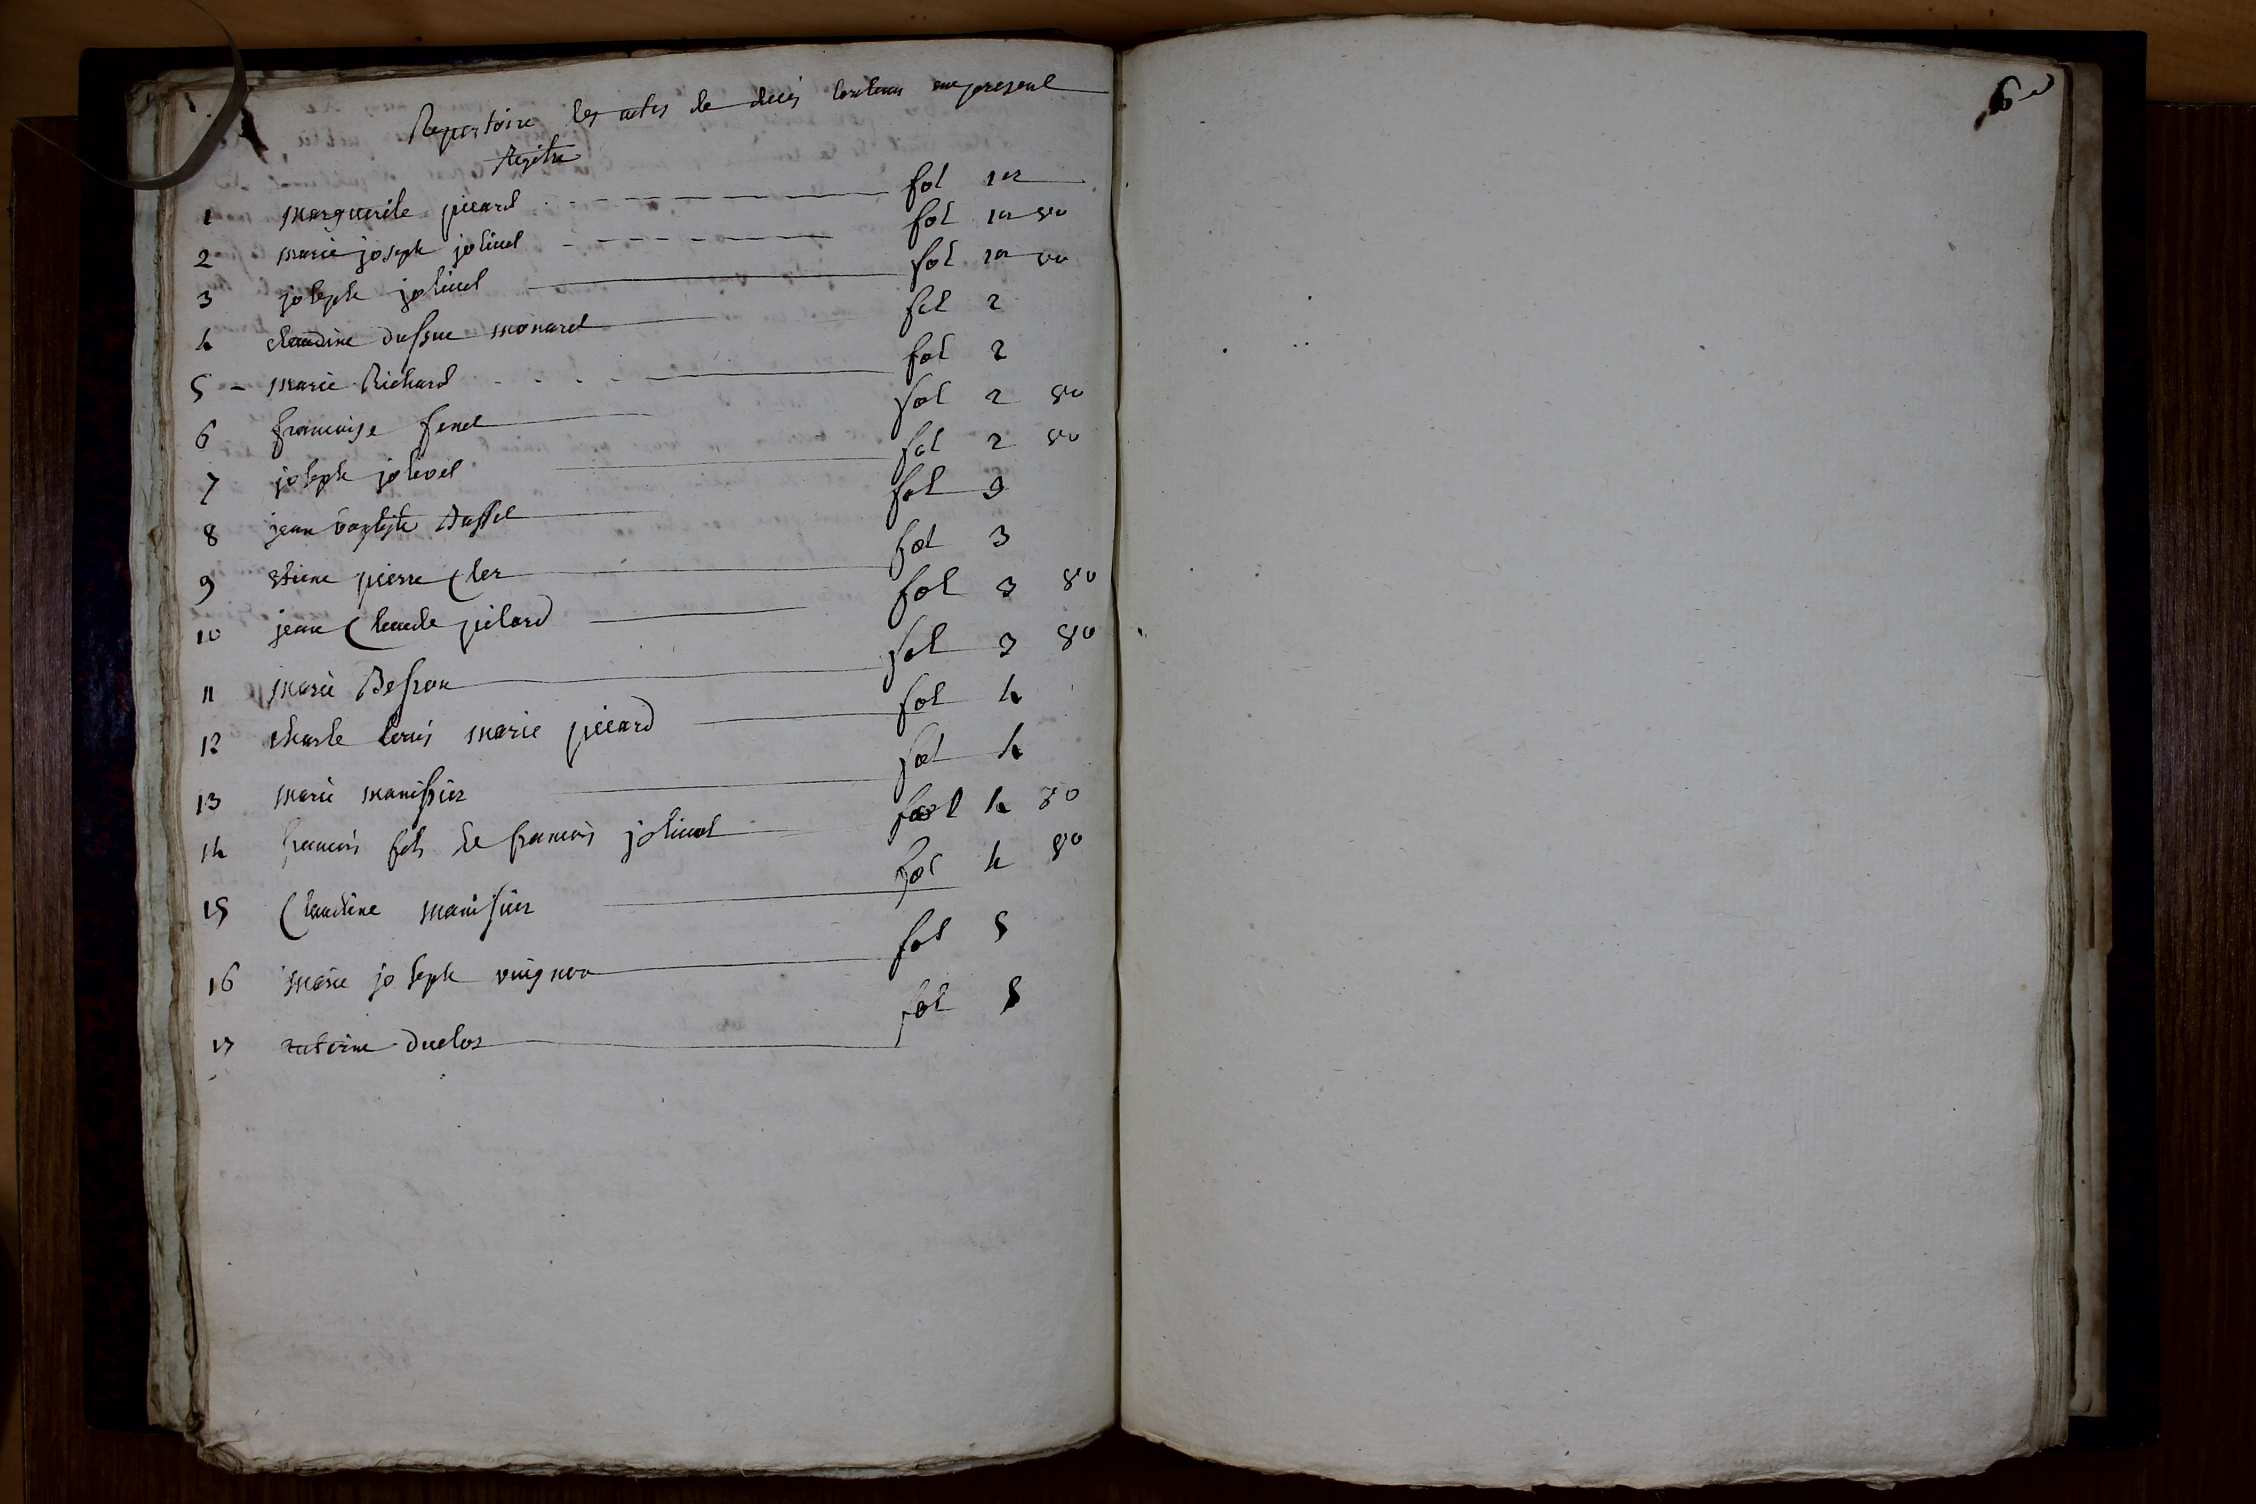 Repertoire des actes de decés contenu au present
Registre
1 marguerite picard fol 1er
2 marie joseph jolivet fol 1er vo
3 joseph jolivet fol 1er vo
4 claudine dussue monaret fol 2
5 - marie Richard fol 2
6 francoise fenet fol 2 vo
7 joseph jolivet fol 2 vo
8 jean baptiste Dussel fol 3
9 etiene pierre Cler fol 3
10 jean Claude picard fol 3 vo
11 marie Besson fol 3 vo
12 charle louis marie picard fol 4
13 marie manissier fol 4
14 francois fils de francois jolivet fol 4 vo
15 Claudine manissier fol 4 vo
16 marie joseph vuignon fol 5
17 duclos fol 5
6e